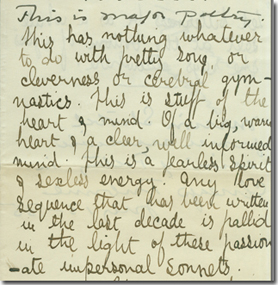 This is major poetry.
This has nothing whatever
to do with pretty song or
cleverness or cerebral gym-
nastics. This is stuff of the
heart & mind. Of a big, warm
heart & a clear, well informed
mind. This is a fearless spirit
& sexless energy. Any love
sequence that has been written
in the last decade is pallid
in the light of these passion
-ate impersonal sonnets.